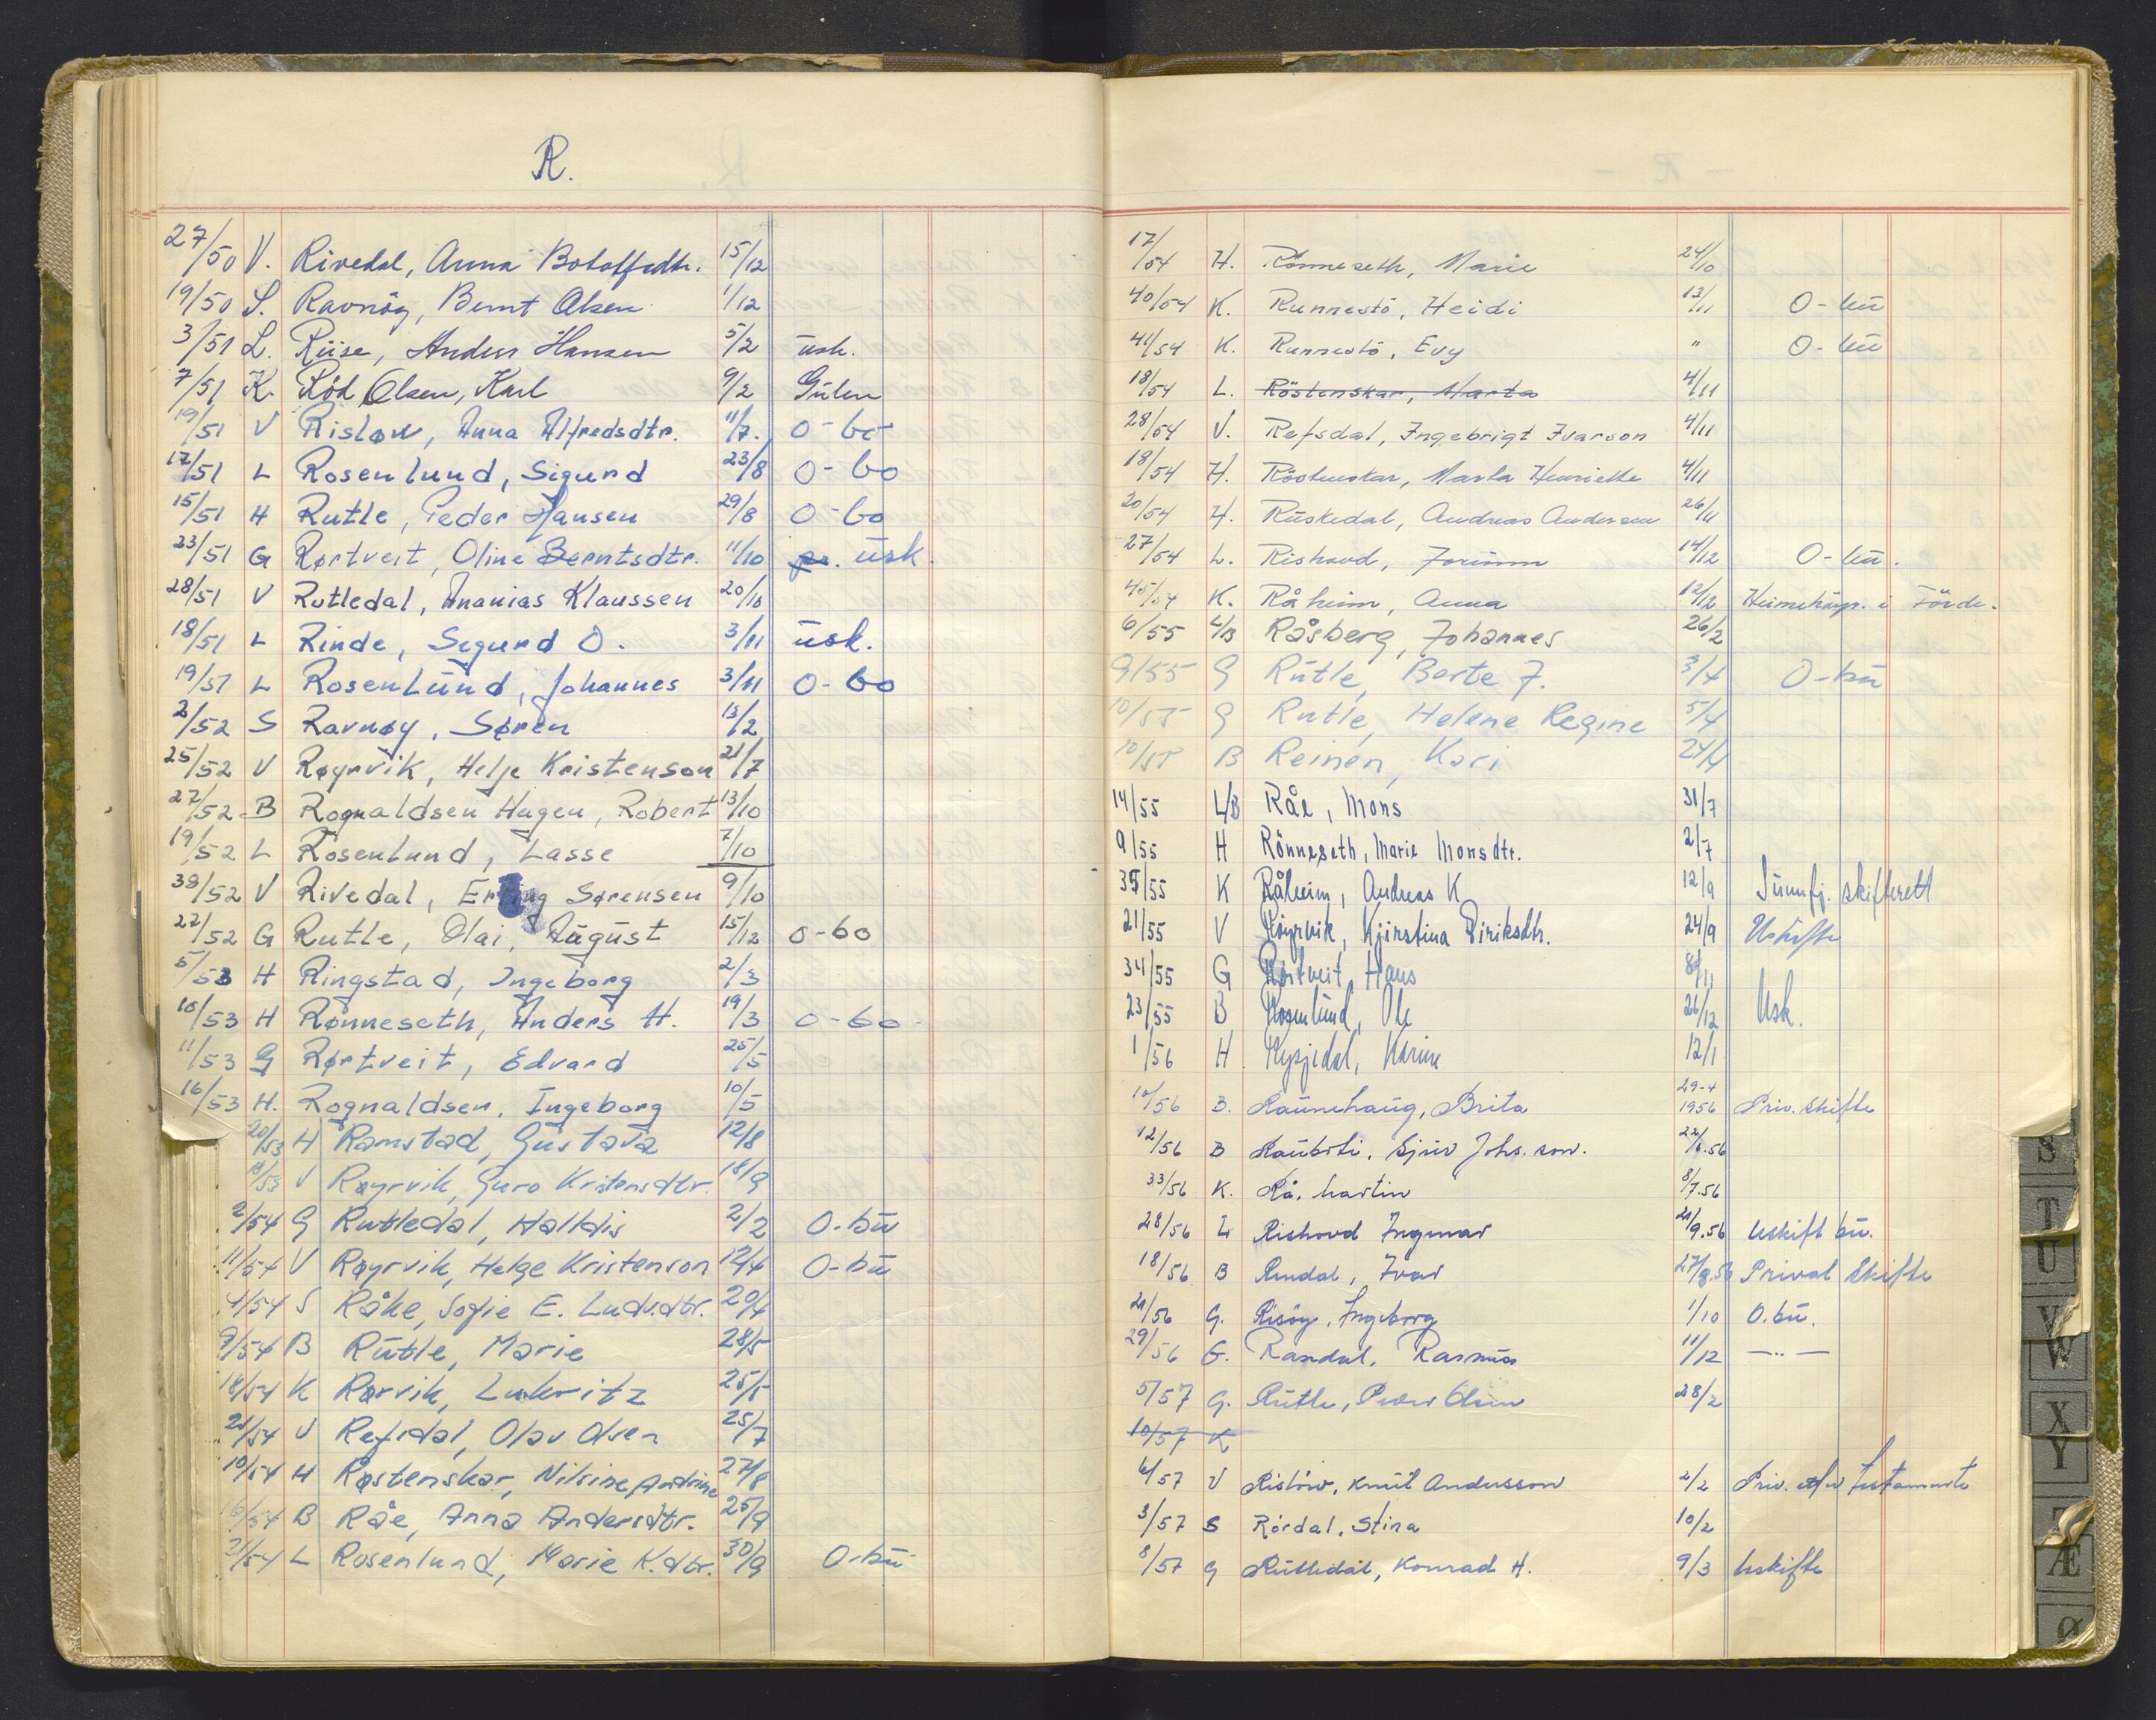 R.
27/50 V. Rivedal, Anna Botolfsdtr. 15/12
19/50 S. Ravnöy, Bernt Olsen 1/12
3/51 L. Riise, Anders Hansen 5/2 usk.
7/51 K. Röd Olsen, Karl 9/2 Gulen
19/51 V Risløw, Anna Alfredsdtr. 11/7. O-bo
17/51 L Rosenlund, Sigurd 23/8 O-bo
15/51 H Rutle, Peder Hansen 29/8 O-bo
23/51 G Rørtveit, Oline Berntsdtr. 11/10 usk.
28/51 V Rutledal, Ananias Klaussen 20/10
18/51 L Rinde, Segurd O. 3/11 usk.
19/51 L Rosenlund, Johannes 3/11 O-bo
2/52 S Ravnøy, Søren 13/2
25/52 V Røyrvik, Helje Kristenson 21/7
27/52 B Rognaldsen Hagen, Robert 13/10
19/52 L Rosenlund, Lasse 7/10
38/52 V Rivedal, Erling Sørensen 9/10
27/52 G Rutle, Olai, August 15/12 O-bo
5/53 H Ringstad, Ingeborg 2/3
10/53 H Rønneseth, Anders H. 19/3 O-bo
11/53 G Rørtveit, Edvard 25/5
16/53 H. Rognaldsen, Ingeborg 10/5
20/53 H Ramstad, Gustava 12/8
18/53 V Røyrvik, Guro Kristensdtr. 18/9
2/54 G Rutledal, Halldis 2/2 O-bu
11/54 V Røyrvik, Helge Kristenson 12/4 O-bu
4/54 S Råke, Sofie E. Ludv.dtr. 20/4
9/54 B Rutle, Marie 28/5
18/54 K Rørvik, Ludvitz 25/5
21/54 V Refsdal, Olav Olsen 25/7
10/54 H Røstenskar, Nilsine Andrine 27/8
16/54 B Råe, Anna Andersdtr. 25/9
21/54 L Rosenlund, Marie K.dtr. 30/9 O-bu
17/54 H. Rönneseth, Marie 24/10
40/54 K. Runnestö, Heidi 13/11 O-bu
41/54 K. Runnestö, Evy " O-bu
18/54 L. Röstenskar, Marta 4/11
28/54 V. Refsdal, Ingebrigt Ivarson 4/11
18/54 H. Röstenskar, Marta Henriette 4/11
20/54 H. Ruskedal, Andreas Andersen 26/11
27/54 L. Rishovd, Jorunn 14/12 O-bu.
45/54 K. Råheim, Anna 12/12 i Förde.
6/55 L/B Råsberg, Johannes 26/2
9/55 G Rutle, Berte J. 3/4 O-bu
10/55 G Rutle, Helene Regine 5/4
10/55 B Reinen, Kari 24/4
14/55 L/B Råe, Mons 31/7
9/55 H Rönneseth, Marie Monsdtr. 2/7
35/55 K Råheim, Andreas K 12/9 Sunnfj. skifterett
21/55 V Röyrvik, Kjerstina Diriksdtr. 24/9 Uskifte
34/55 G Rörtveit, Hans 8/11
23/55 B Rosenlund, Ole 26/12 Usk.
1/56 H Rysjedal, Karine 12/1
10/56 B. Raunehaug, Brita 29-4 1956 Priv. skifte
12/56 B Rauboti, Sjur Johs.son. 22/6.56
33/56 K. Rå, Martin 8/7.56
28/56 L Rishovd Ingemar 21/9.56 Uskift bu.
18/56 B Rendal, Ivar 27/9.56 Privat skifte
21/56 G. Risöy, Ingeborg 1/10 O.bu.
29/56 G. Randal, Rasmus 11/12 — " —
5/57 G. Rutle, Peder Olsen 28/2
10/57 K
6/57 V Rislöw, Knut Andersson 2/2 Priv. etter testamente
3/57 S Rördal, Stina 10/2
8/57 G Rutledal, Konrad H. 9/3 Uskifte
S
T
U
V
W
X
Y
Z
Æ
Ø